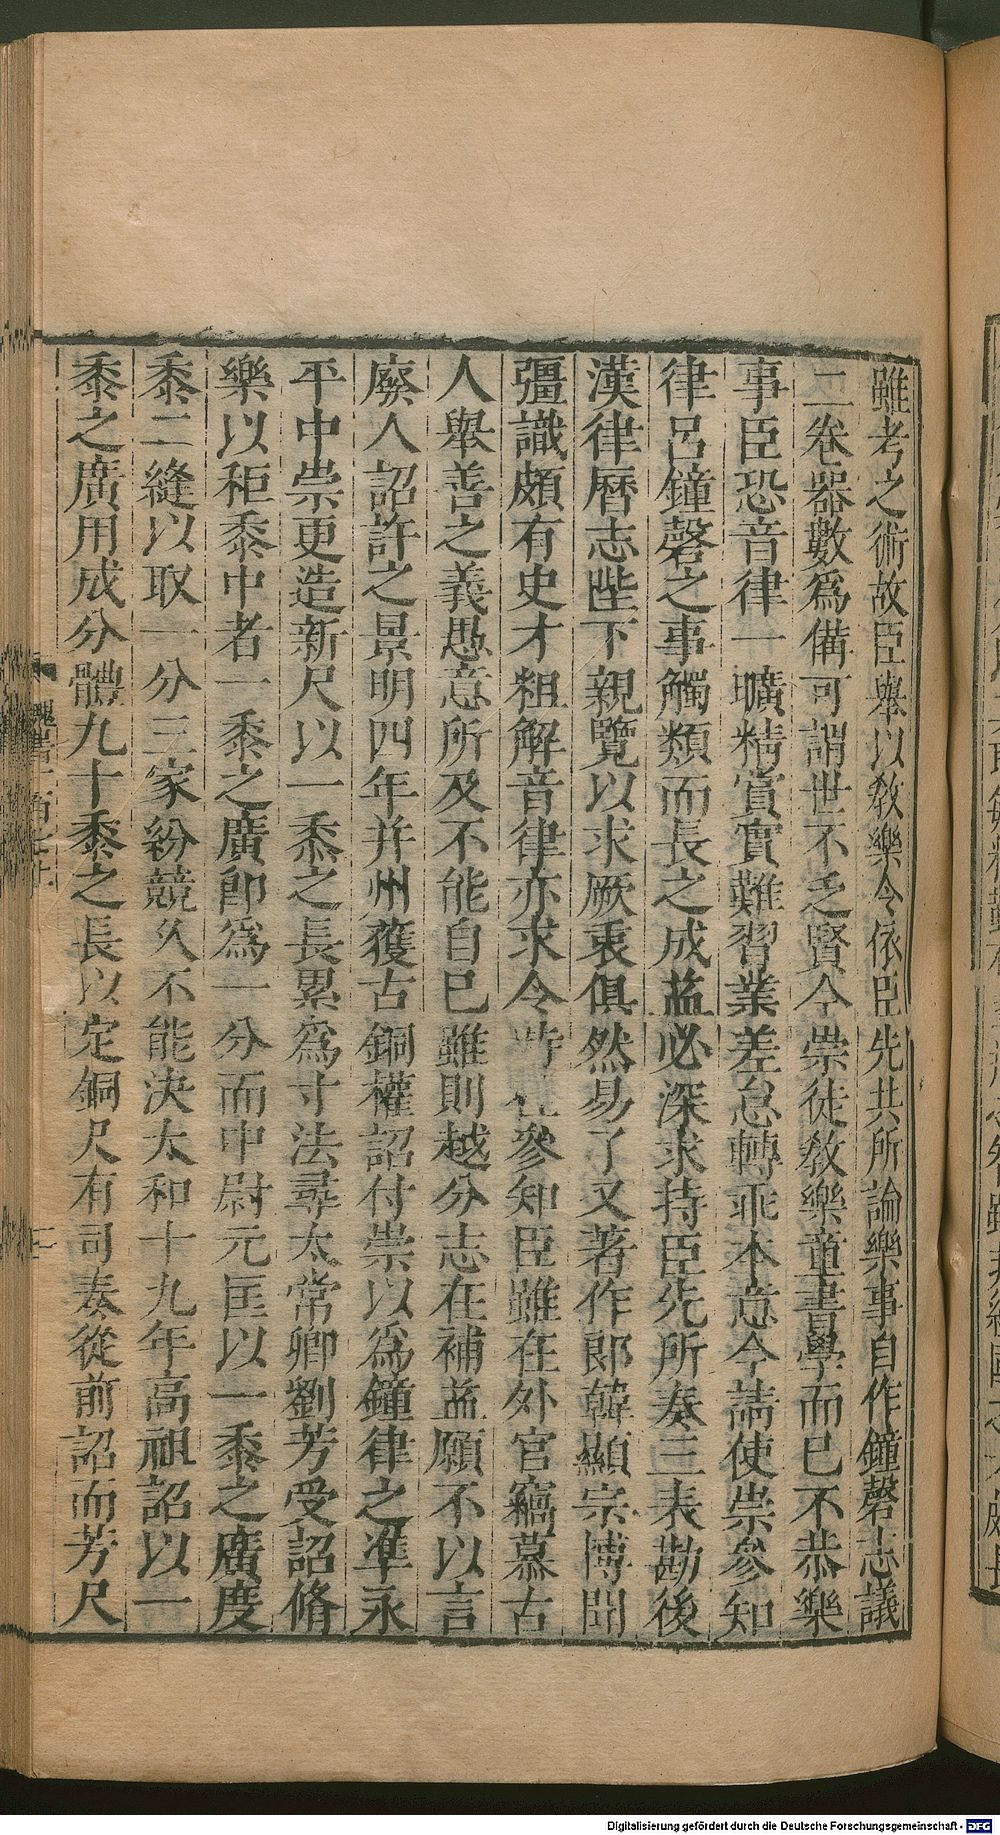 雖考之術故臣舉以教樂令依臣先共所論樂事自作鐘磬志議
二卷器數爲備可謂世不乏賢今崇徒教樂童書學而已不恭樂
事臣恐音律一曠精賞實難習業差怠轉乖本意今請使崇參知
律呂鐘磬之事觸類而長之成益必深求持臣先所奏三表勘後
漢律曆志陛下親覽以求厥衷俱然易了又著作郎韓顯宗博聞
彊識頗有史才粗解音律亦求令時參知臣雖在外官竊慕古
人舉善之義愚意所及不能自已雖則越分志在補益願不以言
廢人詔許之景明四年并州獲古銅權詔付崇以爲鐘律之準永
平中崇更造新尺以一黍之長累爲寸法尋太常卿劉芳受詔脩
樂以秬黍中者一黍之廣即爲一分而中尉元匡以一黍之廣度
黍二縫以取一分三家紛競久不能決太和十九年高祖詔以一
黍之廣用成分體九十黍之長以定銅尺有司奏從前詔而芳尺
Digitalisierung gefördert durch die Deutsche Forschungsgemeinschaft - DFG